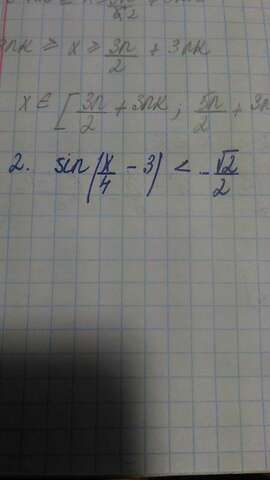 ≥ x ≥ 3π/2 + 3πk
x ∈ [3π/2 + 3πk ; 5π/2 +
2. sin(x/4 - 3) < -√2/2